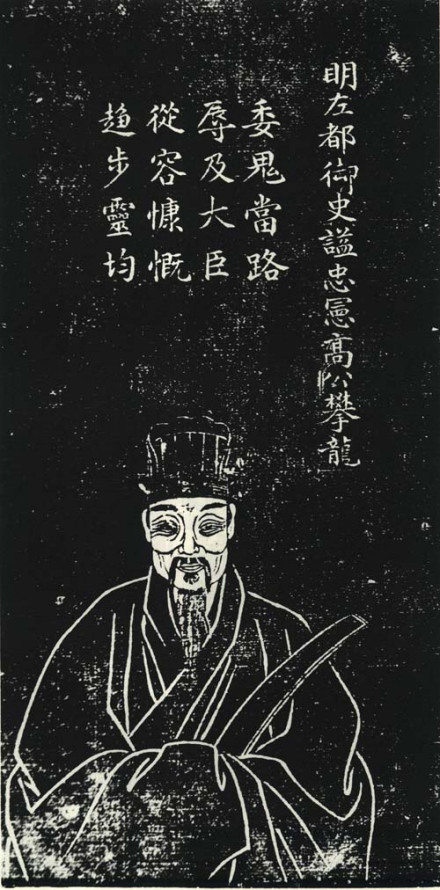 明左都御史謚忠憲高公攀龍
委鬼當路
辱及大臣
從容慷慨
趋步靈均